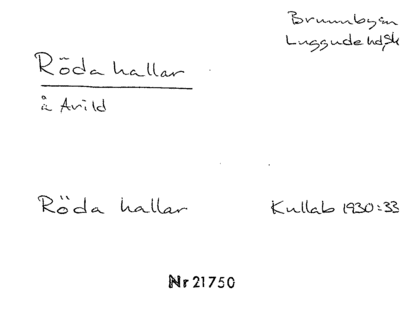 Brunnbysn
Luggudehdsk
Röda hallar
å Arild
Röda hallar Kullab 1930:33
Nr 21750